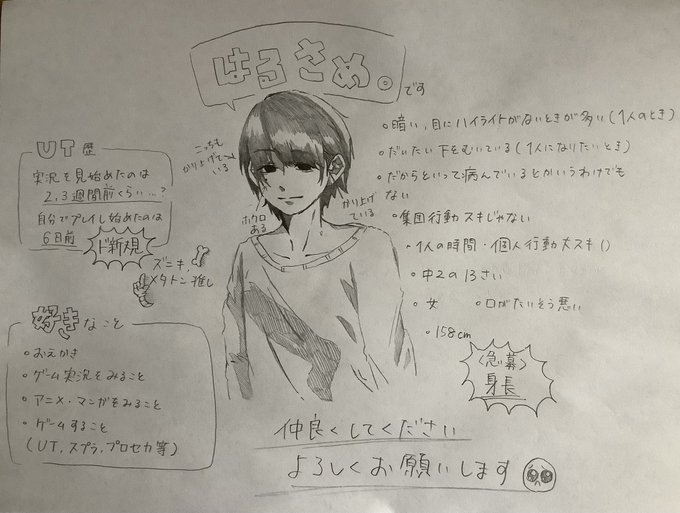 はるさめ。
です
・暗い,目にハイライトがないときが多い(1人のとき)
・だいたい下をむいている(1人になりたいとき)
・だからといって病んでいるとかいうわけでも
ない
・集団行動スキじゃない
・1人の時間・個人行動大スキ()
・中2の13さい
・女
・口がたいそう悪い
・158cm
〈急募〉
身長
こっちも
かり上げて
いる
ホクロ
ある
かり上げ
ている
UT歴
実況を見始めたのは
2,3週間前くらい…?
自分でプレイし始めたのは
6日前
ド新規
ズニキ,
メタトン推し
好きなこと
・おえかき
・ゲーム実況をみること
・アニメ・マンガをみること
・ゲームすること
(UT,スプラ,プロセカ等)
仲良くしてください
よろしくお願いします